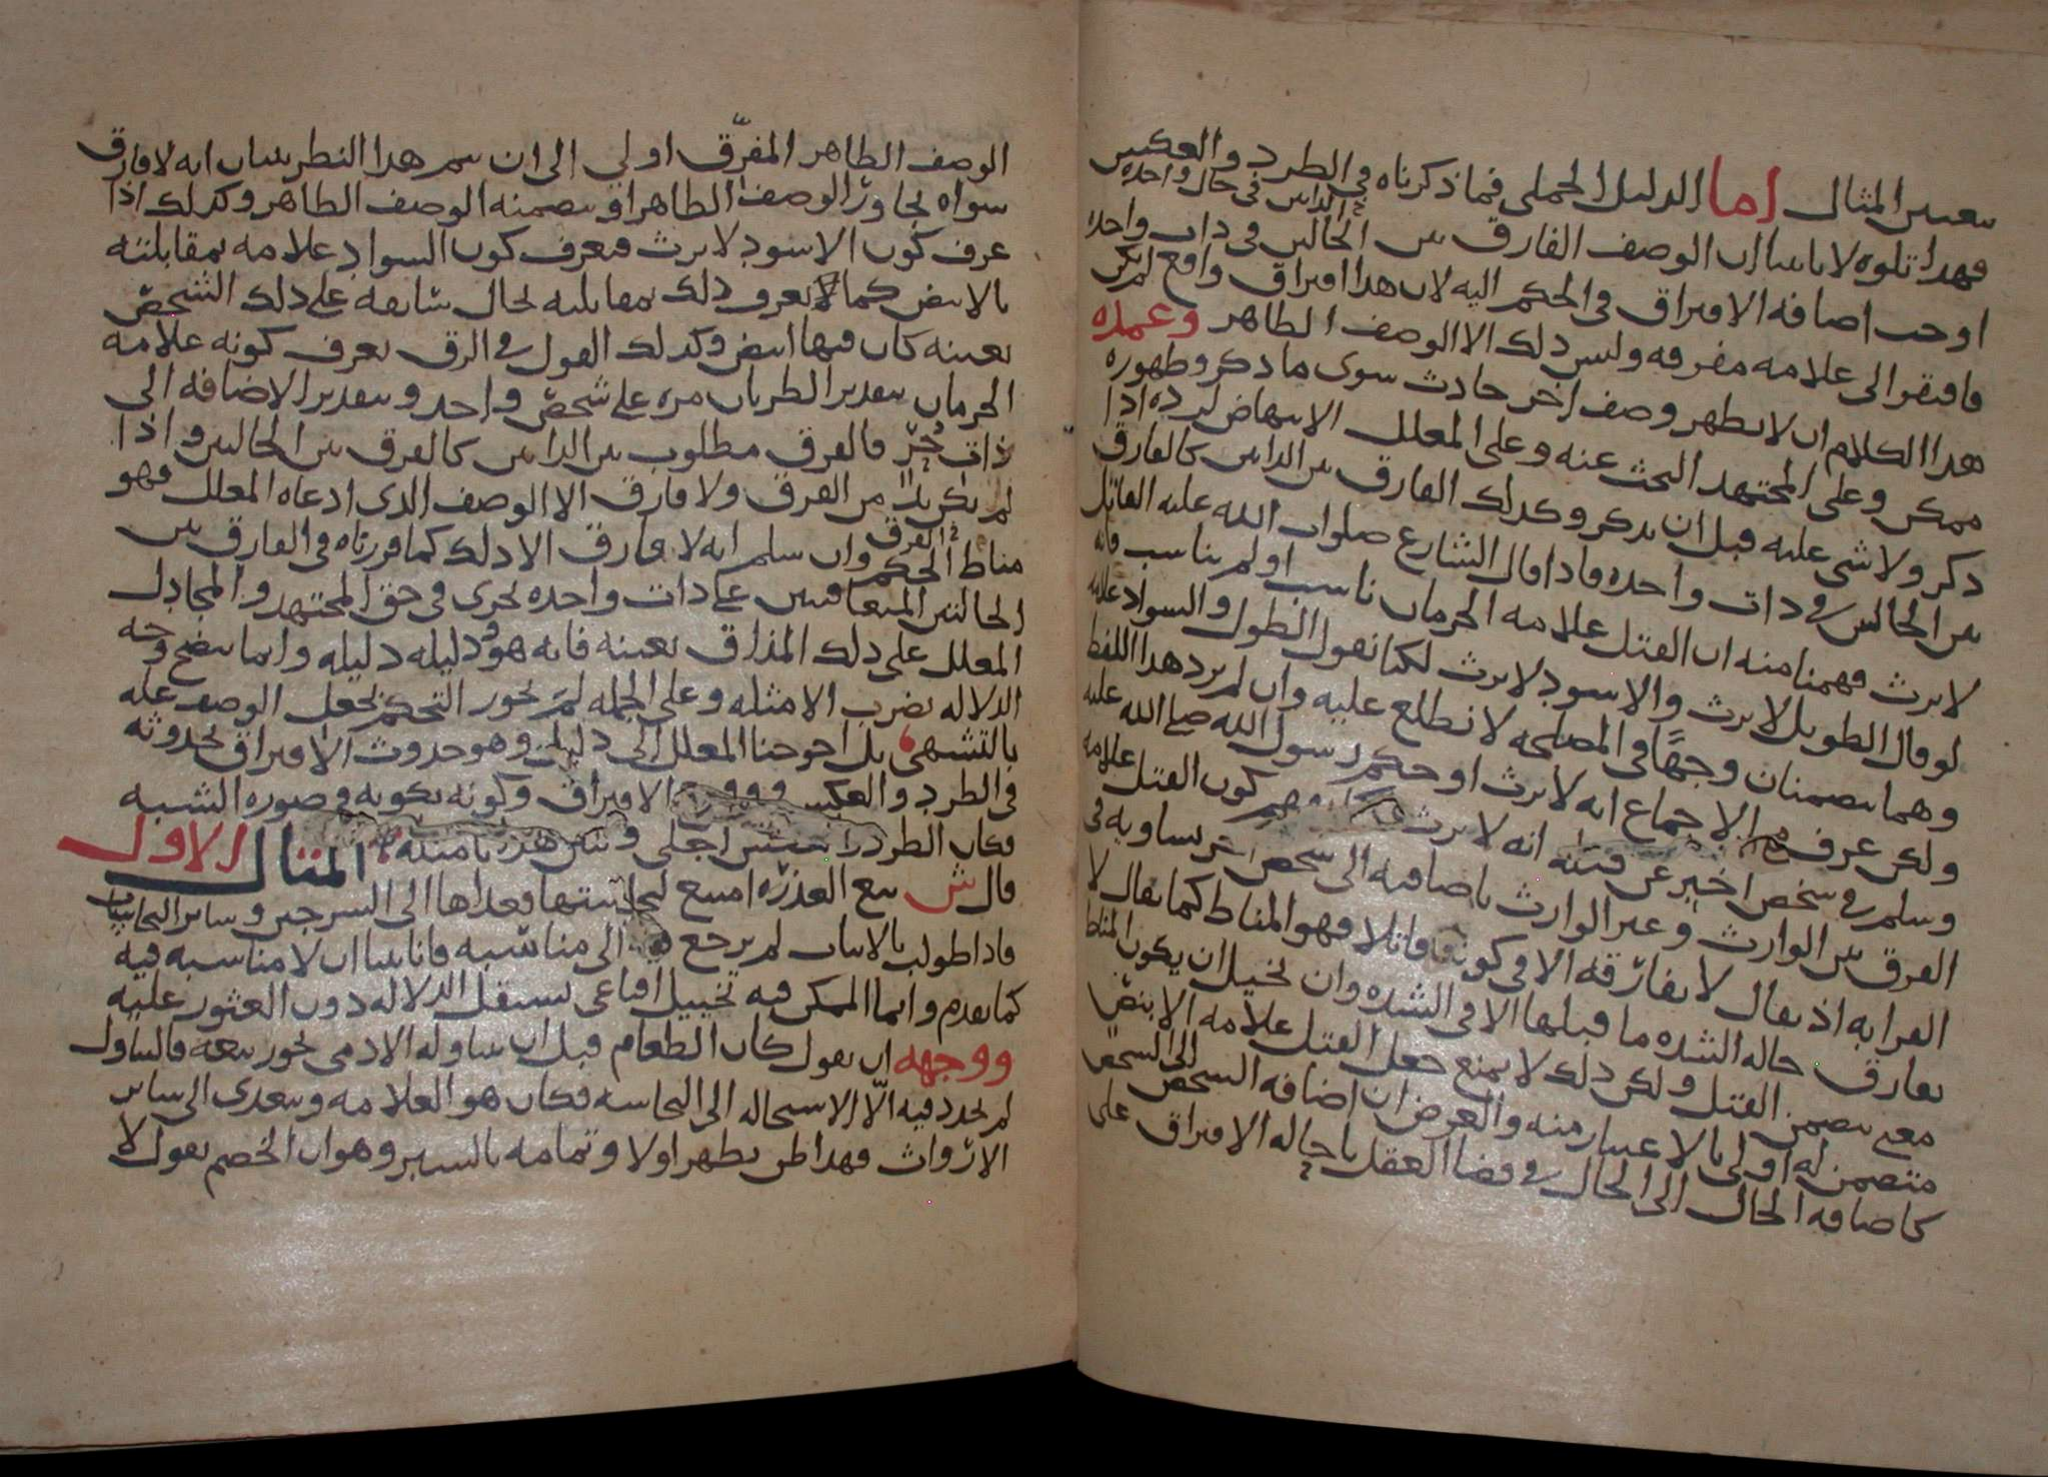 بتعيين المثال اما الدليل الجملي فما ذكرناه في الطرد والعكس
فهذا تلوه لانا بينا ان الوصف الفارق بين الحالين في ذات واحدة
في الذاتين في حال واحده
اوجب اضافه الافتراق في الحكم اليه لان هذا افتراق واقع لم يكن
فافتقر الى علامه مفرقه وليس ذلك الا الوصف الظاهر وعمدة
هذا الكلام ان لا يظهر وصف اخر حادث سوى ما ذكر وظهوره
ممكن وعلى المجتهد البحث عنه وعلى المعلل الانتهاض لرده اذا
ذكر ولا شي عليه قبل ان يذكر وكذلك الفارق بين الذاتين كالفارق
بين الحالين في ذات واحده فاذا قال الشارع صلوات الله عليه القاتل
لا يرث فهمنا منه ان القتل علامه الحرمان ناسب او لم يناسب فانه
لو قال الطويل لا يرث والاسود لا يرث لكنا نقول الطول والسواد علامه
وهما يتضمنان وجها في المصلحه لا نطلع عليه وان لم يرد هذا اللفظ
ولكن عرف من الاجماع انه لا يرث او حكم رسول الله صلى الله عليه
وسلم في شخص اخبر عن قتله انه لا يرث فهم كون القتل علامه
الفرق بين الوارث وغير الوارث باضافته الى شخص اخر يساويه في
القرابه اذ يقال لا يفارقه الا في كونه قاتلا فهو المناط كما يقال لا
يفارق حاله الشده ما قبلها الا في الشده وان تخيل ان يكون المناط
معنى يتضمن القتل ولكن ذلك لا يمنع جعل القتل علامه الا بنص
متضمن له اولى بالاعتبار منه والغرض ان اضافه الشخص الى الشخص
كاضافه الحال الى الحال في قضا العقل باحاله الافتراق على
الوصف الظاهر المفرّق اولي الى ان يتم هذا النظر ببيان انه لا فارق
سواه يجاور الوصف الظاهر او يتضمنه الوصف الظاهر وكذلك اذا
عرف كون الاسود لا يرث فيعرف كون السواد علامه بمقابلته
بالابيض كما لا يعرف ذلك بمقابلته لحال سابقه على ذلك الشخص
بعينه كان فيها ابيض وكذلك القول في الرق يعرف كونه علامه
الحرمان بتقدير الطريان مره على شخص واحد وبتقدير الاضافه الى
ذات حُرّ فالفرق مطلوب بين الذاتين كالفرق بين الحالين واذا
لم يكن بد من الفرق ولا فارق الا الوصف الذي ادعاه المعلل فهو
مناط الحكم الفرق وان سلم انه لا فارق الا ذلك كما قررناه في الفارق بين
الحالتين المتعاقبتين على ذات واحده يجري في حق المجتهد والمجادل
المعلل على ذلك المذاق بعينه فانه هو ودليله دليله وانما يتضح وجه
الدلاله بضرب الامثله وعلى الجمله لم يجوز التحكم بجعل الوصف عله
بالتشهي بل احوجنا المعلل الى دليل وهو حدوث الافتراق بحدوثه
في الطرد والعكس الافتراق وكونه بكونه في صوره الشبه
فكان الطرد اجلى المثال الاول
قال ش بيع العذره امتنع لنجاستها فعداها الى السرجين وساير النجاسات
فاذا طولب بالاثبات لم يرجع الى مناسبه فانا بينا ان لا مناسبه فيه
كما تقدم وانما الممكن فيه تخييل اقناعي تستقل الدلاله دون العثور عليه
ووجهه ان يقول كان الطعام قبل ان يتناوله الادمى يجوز بيعه فالتناول
لم يجدد فيه الّا الاستحاله الى النجاسه فكان هو العلامه ويتعدى الى ساير
الارواث فهذا ظن يظهر اولا وتمامه بالسبر وهو ان الخصم يقول لا